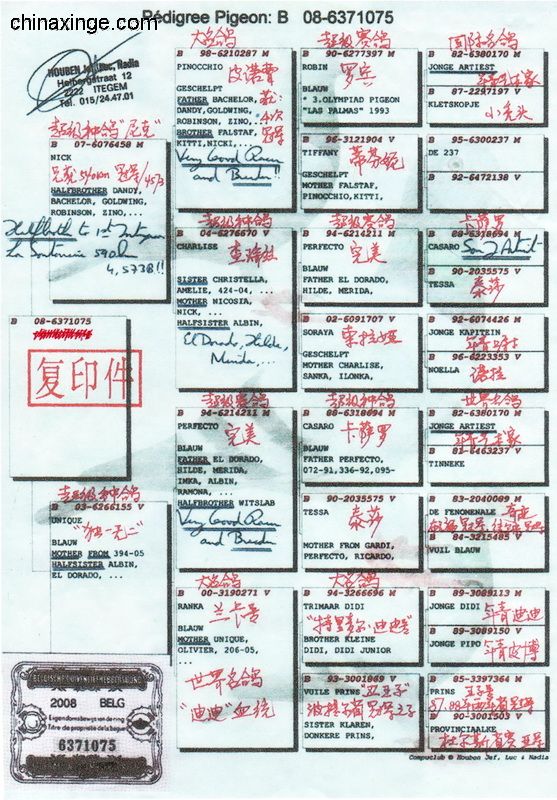 chinaxinge.com
Pédigree Pigeon: B 08-6371075
HOUBEN Jef, Luc, Nadia
Helbergstraat 12
2222 ITEGEM
Tel. 015/24.47.01
超级种鸽"尼克"
B 07-6076458 M
NICK
HALFBROTHER DANDY,
BACHELOR, GOLDWING,
ROBINSON, ZINO,...
Halfbroth to 1st
La Souterraine 590km
4,5738!!
B 08-6371075
复印件
超级种鸽
B 03-6266155 V
UNIQUE
"独一无二"
BLAUW
MOTHER FROM 394-05
HALFSISTER ALBIN,
EL DORADO, ...
2008 BELG
Eigendomsbewijs van de ring
Titre de propriété de la bague
6371075
大名鸽
B 98-6210287 M
PINOCCHIO
皮诺曹
GESCHELPT
FATHER BACHELOR,
DANDY,GOLDWING,
ROBINSON, ZINO,..
BROTHER FALSTAF,
KITTI,NICKI,...
Very Good Racer
and Breeder!!
超级种鸽
B 04-6276670 V
CHARLISE
SISTER CHRISTELLA,
AMELIE, 424-04, ...
MOTHER NICOSIA,
NICK, ...
HALFSISTER ALBIN,
El Dorado, Hilde,
Merida, ...
超级种鸽
B 94-6214211 M
PERFECTO
完美
BLAUW
FATHER EL DORADO,
HILDE, MERIDA,
IMKA, ALBIN,
RAMONA, ...
HALFBROTHER WITSLAB
Very Good Racer
and Breeder
大名鸽
B 00-3190271 V
RANKA
兰卡
BLAUW
MOTHER UNIQUE,
OLIVIER, 206-05,
...
世界名鸽
"迪迪"血统
超级赛鸽
B 90-6277390 M
ROBIN
罗宾
BLAUW
" 3.OLYMPIAD PIGEON
"LAS PALMAS" 1993
B 96-3121904 V
TIFFANY
蒂芬妮
GESCHELPT
MOTHER FALSTAF,
PINOCCHIO,KITTI,
超级赛鸽
B 94-6214211 M
PERFECTO
完美
BLAUW
FATHER EL DORADO,
HILDE, MERIDA,
B 02-6091707 V
SORAYA
索拉娅
GESCHELPT
MOTHER CHARLISE,
SANKA, ILONKA,
超级种鸽
B 88-6318694 M
CASARO
卡萨罗
BLAUW
FATHER PERFECTO,
072-91,336-92,095-
B 90-2035575 V
TESSA
泰莎
MOTHER FROM GARDI,
PERFECTO, RICARDO,
大名鸽
B 94-3266696 M
TRIMAAR DIDI
"特里麦尔·迪迪"
BROTHER KLEINE
DIDI, DIDI JUNIOR
B 93-3001869 V
VUILE PRINS
SISTER KLAREN,
DONKERE PRINS,
国际名鸽
B 82-6380170 M
JONGE ARTIEST
B 87-2297197 V
KLETSKOPJE
小秃头
B 95-6300237 M
DE 237
B 92-6472138 V
卡萨罗
B 88-6318694 M
CASARO
Son J Artist
B 90-2035575 V
TESSA
泰莎
B 92-6074426 M
JONGE KAPITEIN
B 96-6223353 V
NOELLA
诺拉
世界名鸽
B 82-6380170 M
JONGE ARTIEST
B 81-6463237 V
TINNEKE
B 83-2040089 M
DE FENOMENALE
B 84-3215485 V
VUIL BLAUW
B 89-3085113 M
JONGE DIDI
年青迪迪
B 89-3089150 V
JONGE PIPO
年青皮博
B 85-3397364 M
PRINS
王子
B 90-3001503 V
PROVINCIAALKE
Compuclub © Houben Jef, Luc & Nadia